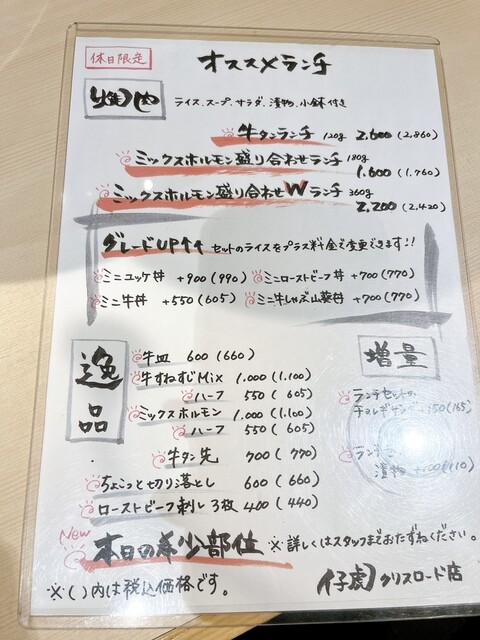 休日限定
オススメランチ
焼肉
ライス、スープ、サラダ、漬物、小鉢付き
牛タンランチ 120g 2,600 (2,860)
ミックスホルモン盛り合わせランチ 180g 1,600 (1,760)
ミックスホルモン盛り合わせWランチ 360g 2,200 (2,420)
グレードUP↑↑ セットのライスをプラス料金で変更できます!!
ミニユッケ丼 +900 (990) ミニローストビーフ丼 +700 (770)
ミニ牛丼 +550 (605) ミニ牛しゃぶ山葵丼 +700 (770)
逸品
牛皿 600 (660)
牛すねすじMix 1,000 (1,100)
ハーフ 550 (605)
ミックスホルモン 1,000 (1,100)
ハーフ 550 (605)
牛タン先 700 (770)
ちょこっと切り落とし 600 (660)
ローストビーフ刺し 3枚 400 (440)
増量
ランチセットの
チョレギサラダ +150 (165)
漬物 +100 (110)
New
本日の希少部位 ※詳しくはスタッフまでおたずねください。
※( )内は税込価格です。
仔虎 クリスロード店